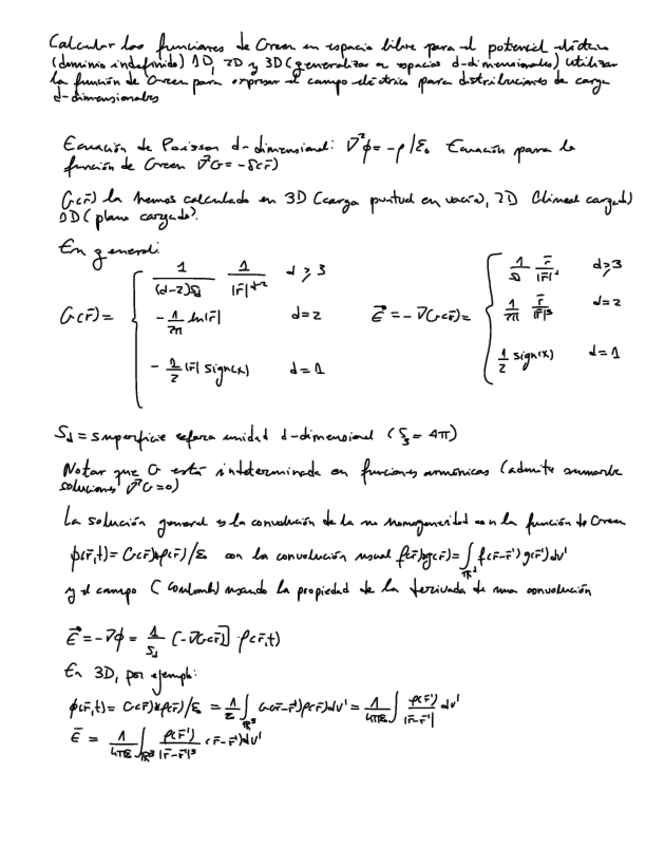 Calcular las funciones de Green en espacio libre para el potencial eléctrico
(dominio indefinido) 1D, 2D y 3D (generalizar a espacios d-dimensionales) Utilizar
la función de Green para expresar el campo eléctrico para distribuciones de carga
d-dimensionales
Ecuación de Poisson d-dimensional: ∇²φ = -ρ/ε₀ Ecuación para la
función de Green ∇²G = -δ(r̄)
G(r̄) la hemos calculado en 3D (carga puntual en vacío), 2D (lineal cargado)
1D (plano cargado).
En general:
G(r̄) = { 1/((d-2)S_d) 1/|r̄|^{d-2} d ≥ 3
- 1/2π ln|r̄| d = 2
- 1/2 |r̄| sign(x) d = 1
E⃗ = -∇G(r̄) = { 1/S_d r̄/|r̄|^d d ≥ 3
1/2π r̄/|r̄|³ d = 2
1/2 sign(x) d = 1
S_d = superficie esfera unidad d-dimensional (S₃ = 4π)
Notar que G está indeterminada en funciones armónicas (admite sumarle
soluciones ∇²G = 0)
La solución general es la convolución de la no homogeneidad con la función de Green
φ(r̄,t) = G(r̄)*ρ(r̄)/ε₀ con la convolución usual f(r̄)*g(r̄) = ∫ f(r̄-r̄')g(r̄')dv'
y el campo (Coulomb) usando la propiedad de la derivada de una convolución
E⃗ = -∇φ = 1/S_d [-∇G(r̄)] * ρ(r̄,t)
En 3D, por ejemplo:
φ(r̄,t) = G(r̄)*ρ(r̄)/ε₀ = 1/ε ∫ G(r̄-r̄')ρ(r̄')dv' = 1/4πε ∫ ρ(r̄')/|r̄-r̄'| dv'
E̅ = 1/4πε ∫ ρ(r̄')/|r̄-r̄'|³ (r̄-r̄')dv'